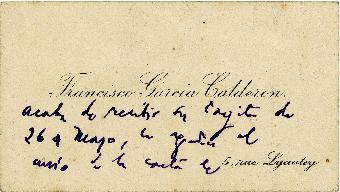 Francisco García Calderon.
acaba de recibir su tarjeta de
26 de Mayo, le agradece el
envio de la carta
5, rue Lyautey